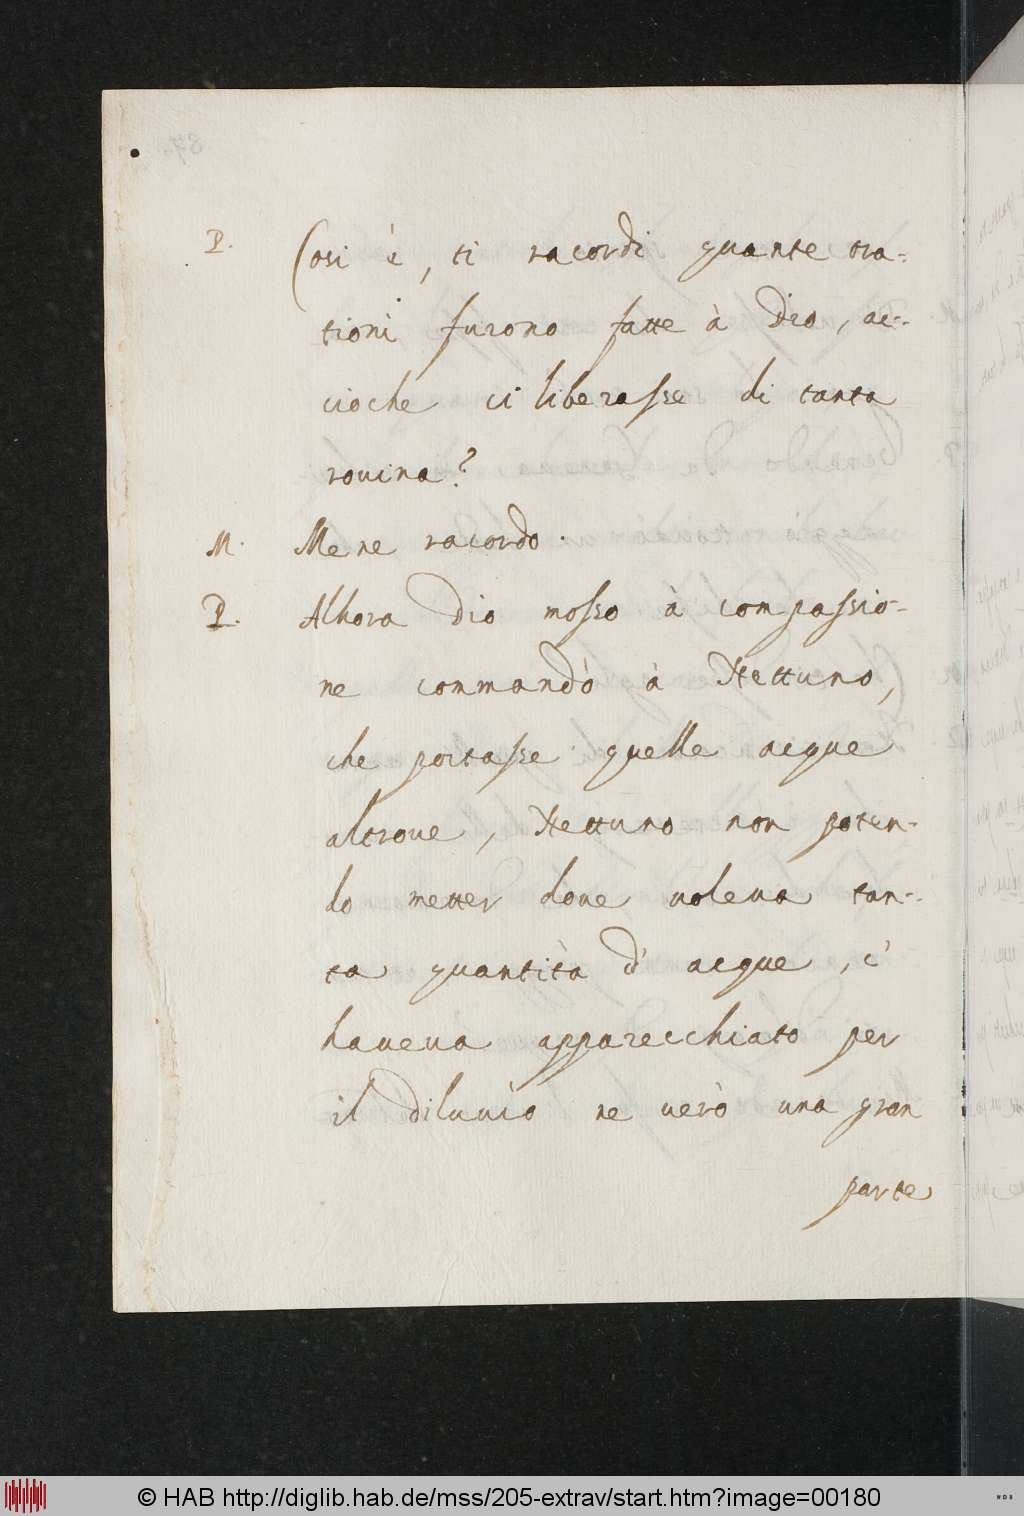 P. Cosi è, ti racordi quante ora-
tioni furono fatte à Dio, ac-
cioche ci liberasse di tanta
rouina?
M. Me ne racordo.
P. Alhora Dio mosso à compassio-
ne commandò à Nettuno,
che portasse quelle acque
altroue, Nettuno non poten-
do metter doue uoleua tan-
ta quantità d' acque, c'
haueua apparecchiato per
il diluuio ne uerò una gran
parte
© HAB http://diglib.hab.de/mss/205-extrav/start.htm?image=00180